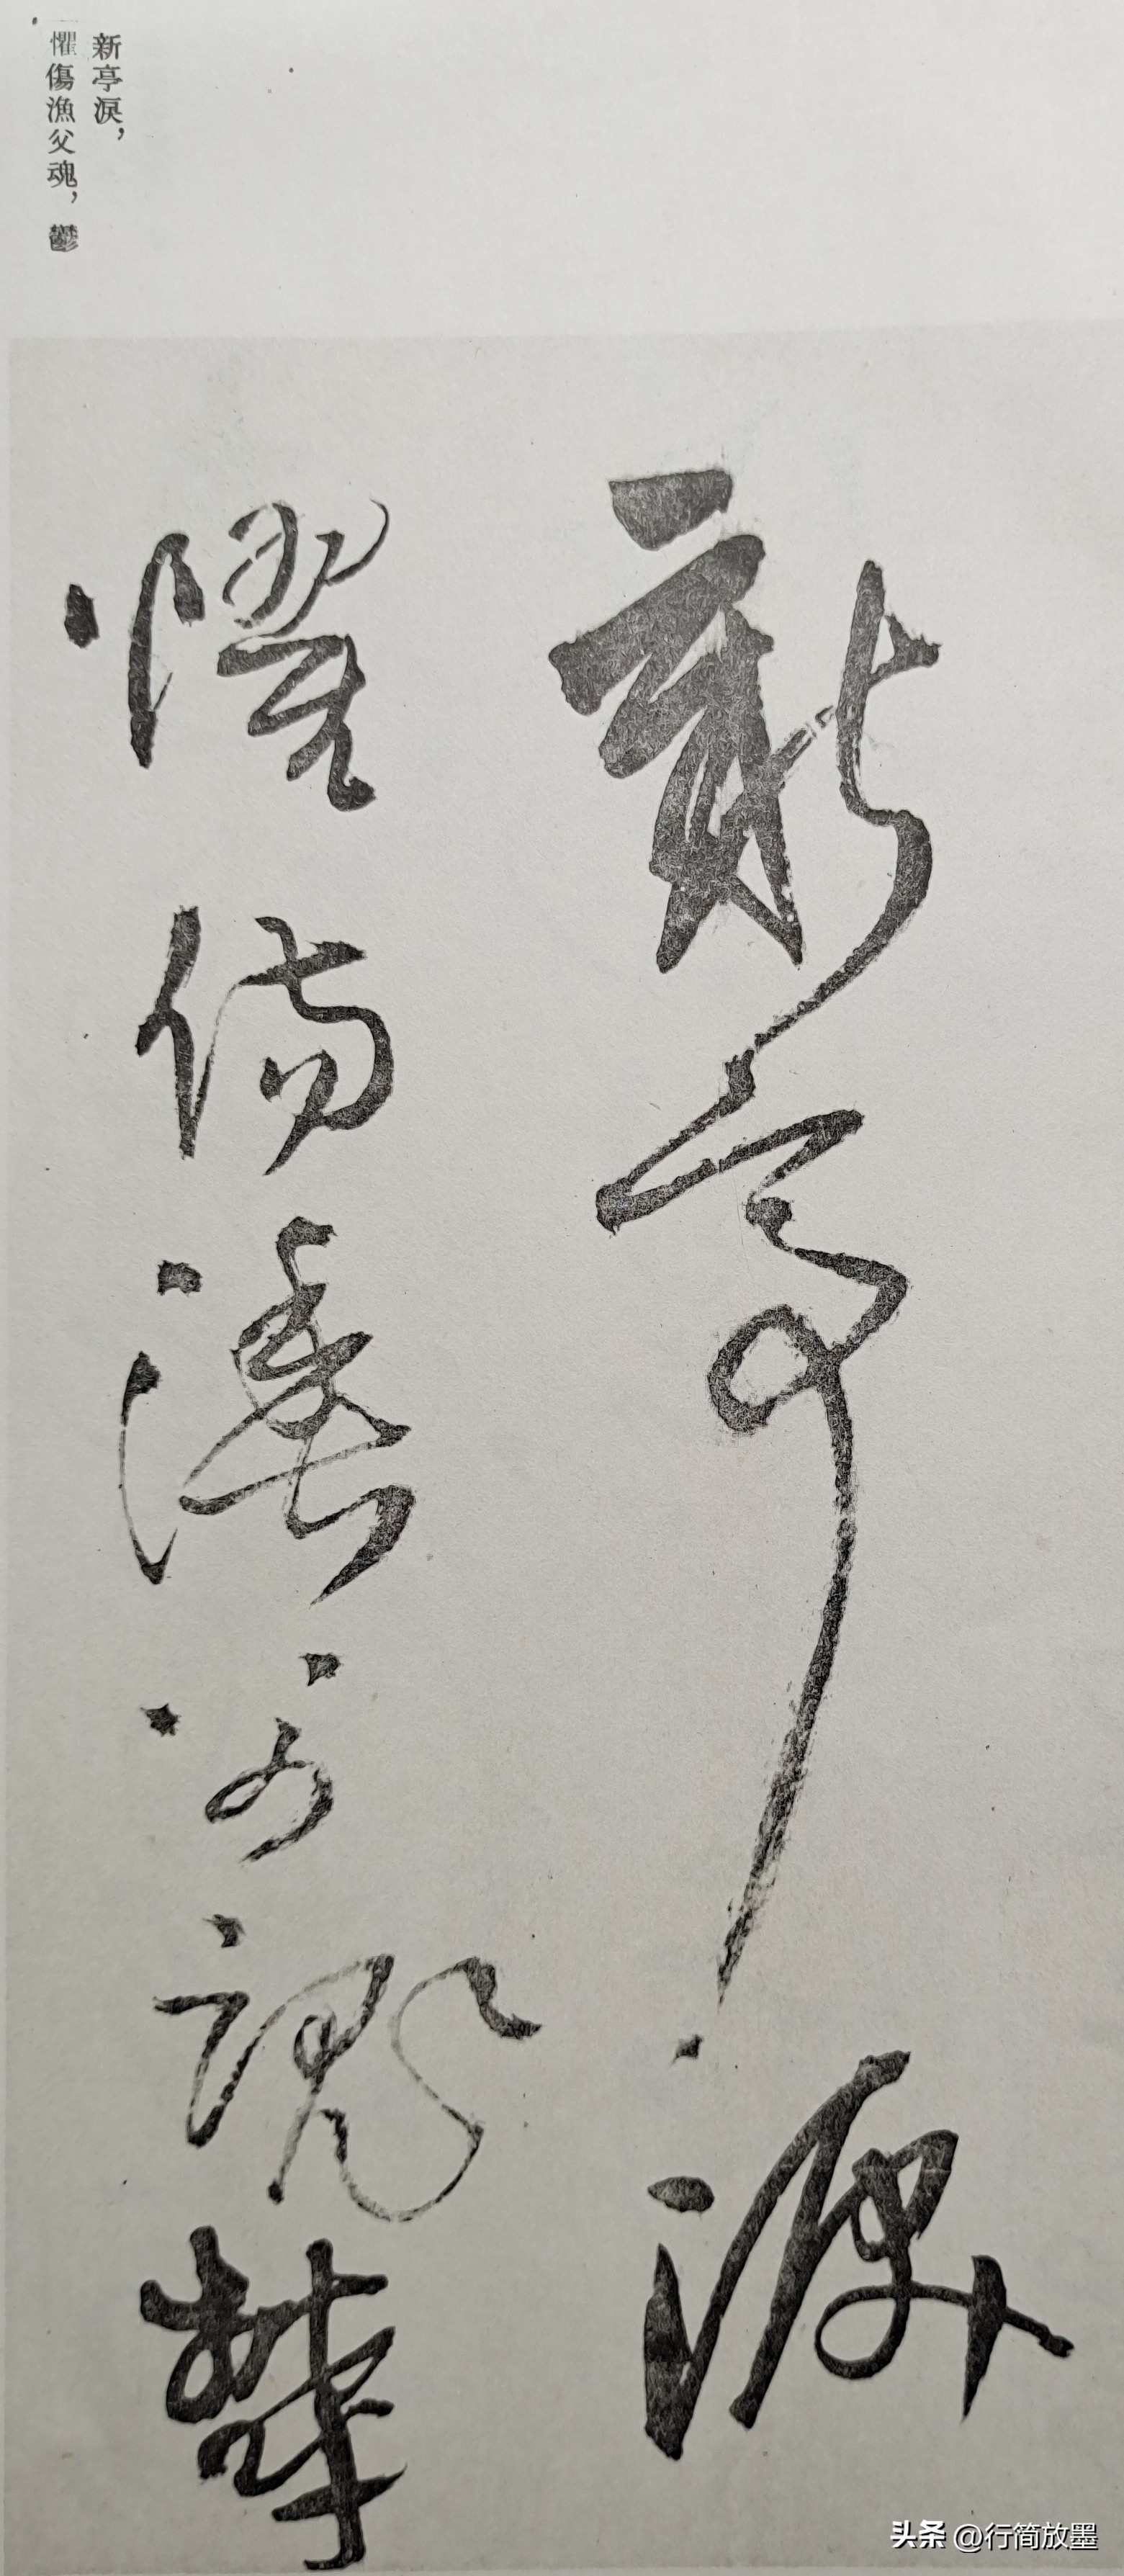 新亭淚，
懼傷漁父魂，鬱
新亭淚
懼傷漁父魂鬱
头条 @行简放墨